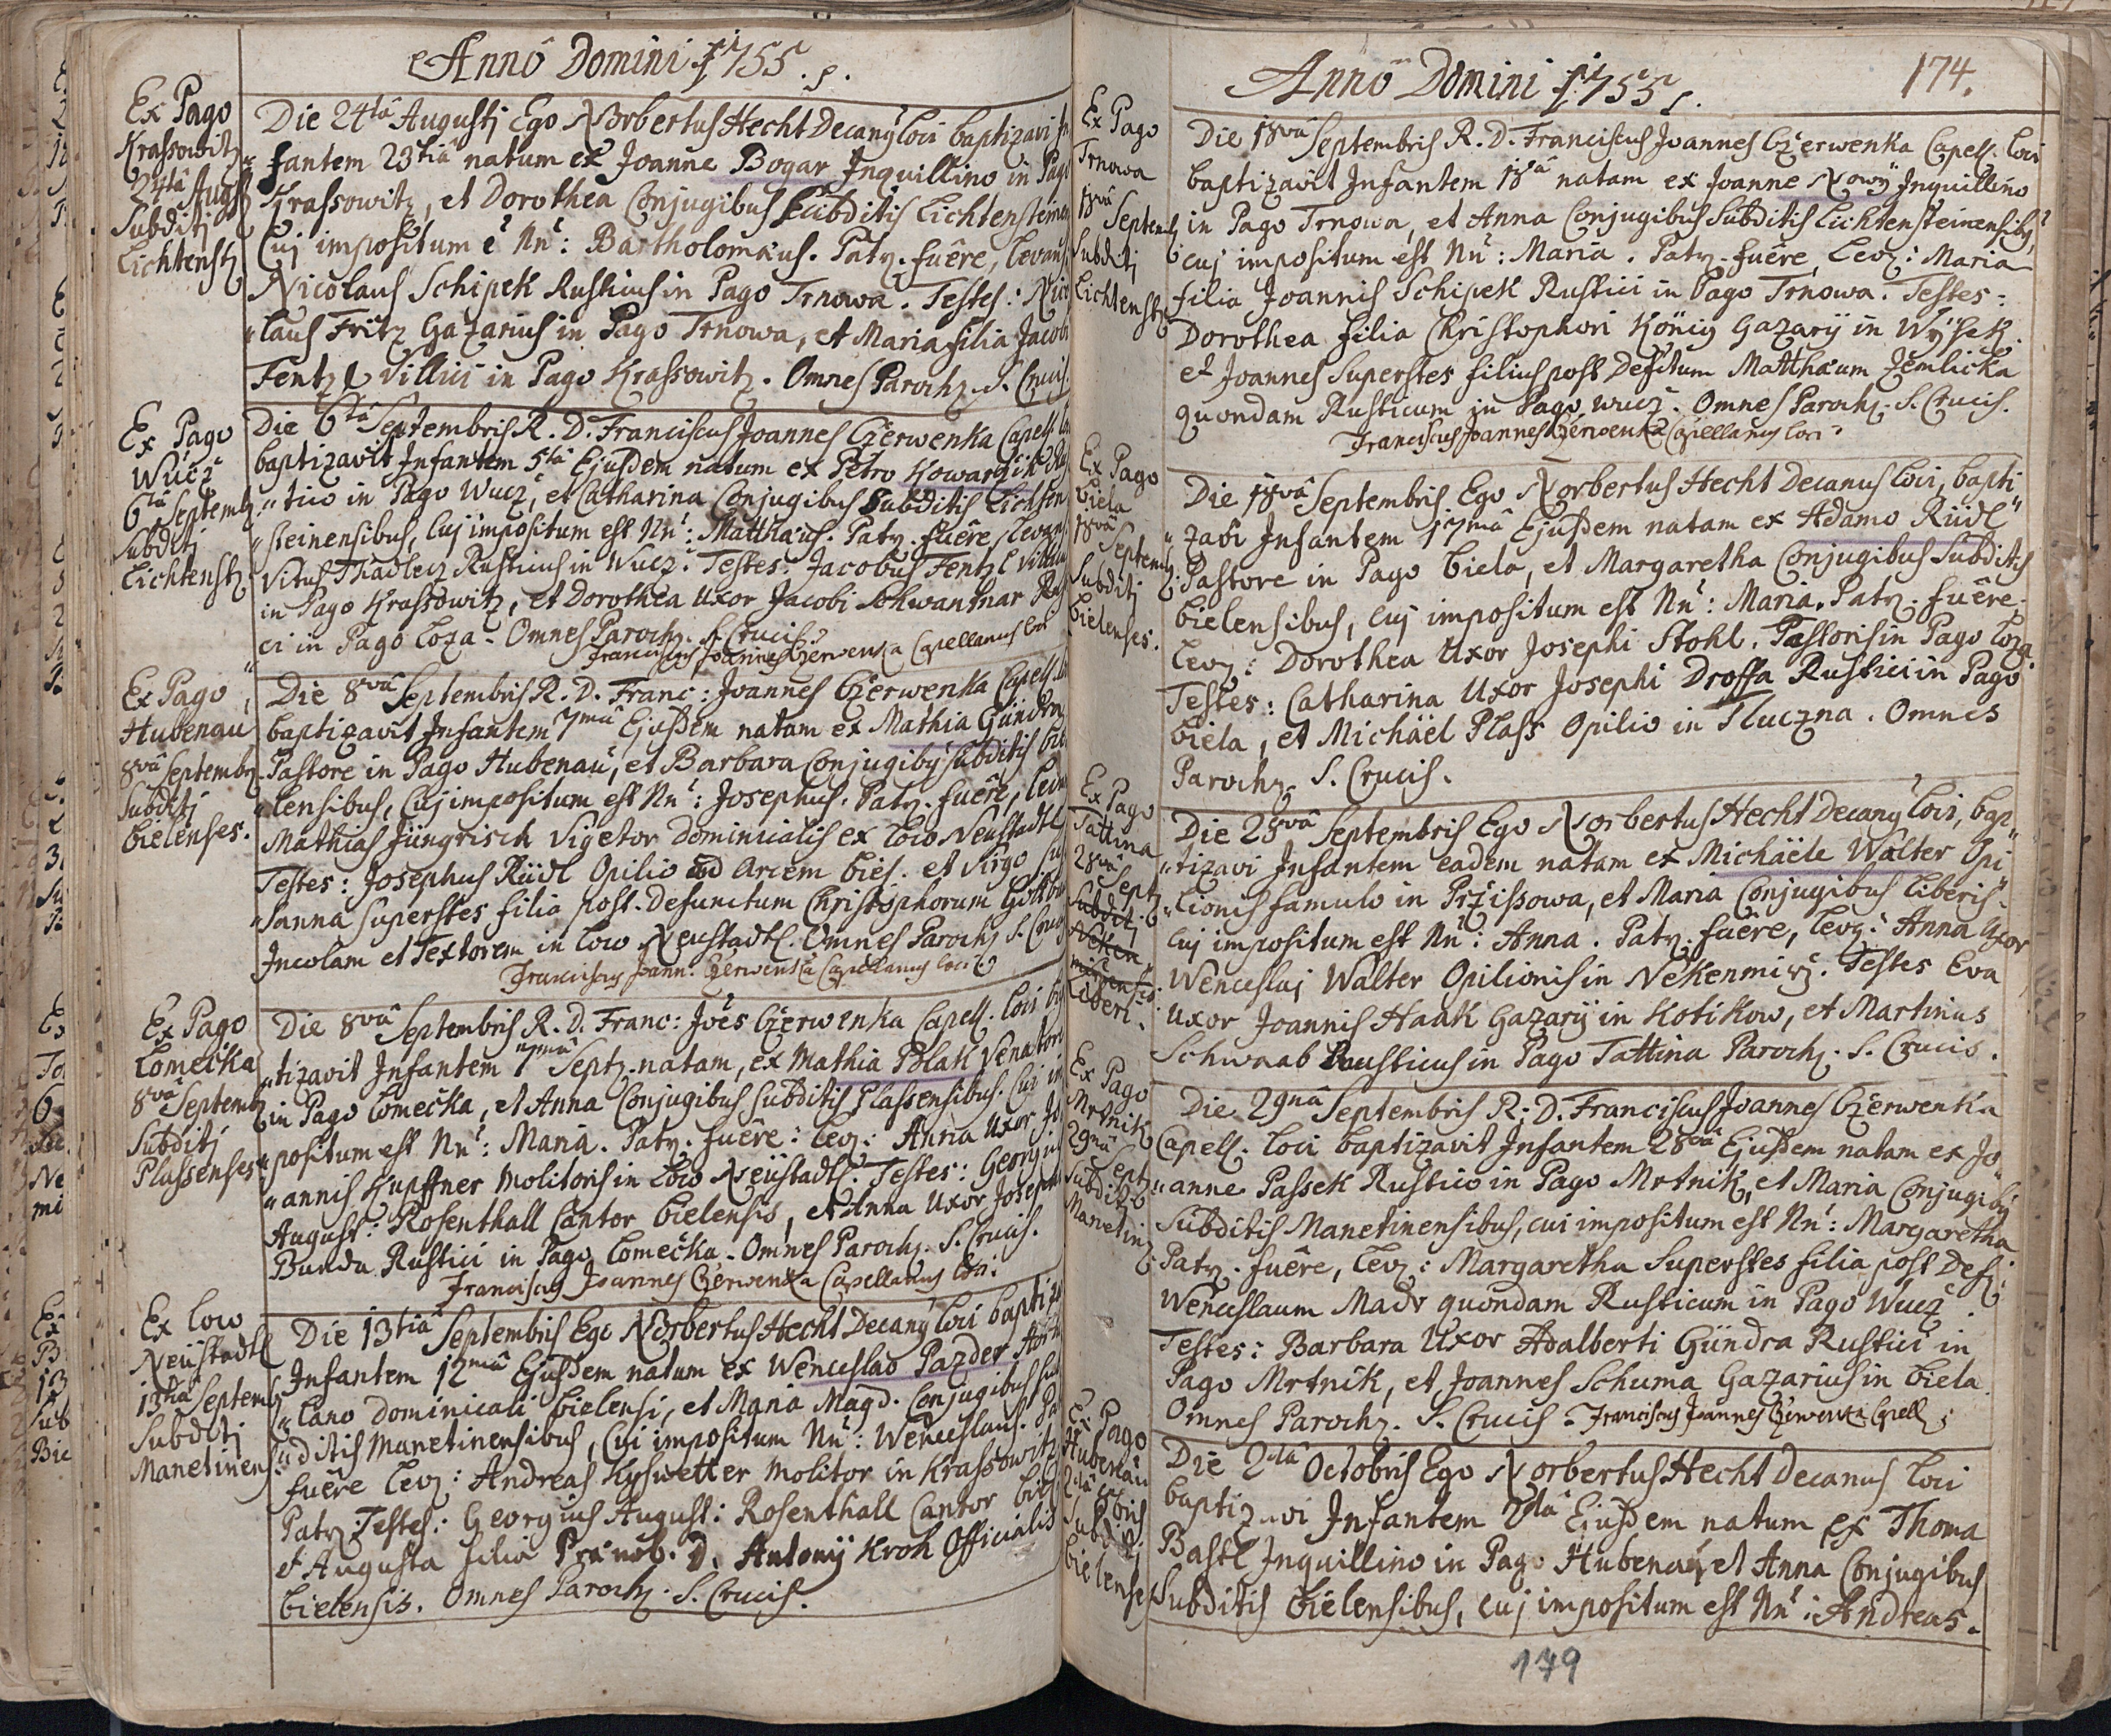 Anno Domini 1755.
Ex Pago
Krassowitz
24tâ Augs
Subditj
Lichtenstz
Die 24tâ Augustj Ego Norbertus Hecht Decanꝰ loci baptizavi In
fantem 23tiâ natum ex Joanne Bogar Inquillino in Pago
Krassowitz, et Dorothea Conjugibus Subditis Lichtensteinen
Cuj impositum ē Nn̄: Bartholomæus. Patr. fuêre, levans
Nicolaus Schipek Rusticus in Pago Trnowa. Testes: Nico
"laus Fritz Gazarius in Pago Trnowa, et Maria filia Jacobi
Fentzl Villici in Pago Krassowitz. Omnes Parochz. S. Crucis.
Ex Pago
Wucz
6tâ Septembz
Subditj
Lichtenstz
Die 6tâ Septembris R. D. Franciscus Joannes Czerwenka Capell. lo
baptizavit Infantem 5tâ Ejusdem natum ex Petro Kowarzik Rus
"tico in Pago Wucz, et Catharina Conjugibus Subditis Lichten
"steinensibus, Cuj impositum est Nn̄: Matthæus. Patr. fuêre, levans
Vitus Thadlecz Rusticus in Wucz. Testes: Jacobus Fentzl Villicus
in Pago Krassowitz, et Dorothea Uxor Jacobi Schwantnar Rus
ci in Pago Loza. Omnes Parochz. S. Crucis.
Franciscus Joannes Czerwenka Capellanus loci
Ex Pago
Hubenau
8vâ Septembz.
Subditj
Bielenses.
Die 8vâ Septembris R. D. Franc: Joannes Czerwenka Capell. lo
baptizavit Infantem 7mâ Ejusdem natam ex Mathia Gündra
Pastore in Pago Hubenau, et Barbara Conjugibꝰ Subditis bie
"lensibus, Cuj impositum est Nn̄: Josephus. Patr. fuêre, levans
Mathias Jüngrisch Vigetor Dominicalis ex loco Neustadtl
Testes: Josephus Rüdl Opilio ad Arcem biel. et Virgo Su
"sanna Superstes filia post Defunctum Christophorum
Incolam et Textorem in loco Neustadtl. Omnes Parochz S. Crucis
Franciscus Joann. Czerwenka Capellanus loci
Ex Pago
Lomečka
8vâ Septembz
Subditj
Plassenses
Die 8vâ Septembris R. D. Franc: Joēs Czerwenka Capell. loci bap
"tizavit Infantem 7mâ Septz. natam, ex Mathia Polak Venatore
in Pago Lomečka, et Anna Conjugibus Subditis Plassensibus. Cui im
"positum est Nn̄: Maria. Patr. fuêre: levz: Anna Uxor Jo
"annis Kupffner Molitoris in loco Neüstadtl. Testes: Georgius
August: Rosenthall Cantor bielensis, et Anna Uxor Josephi
Bunda Rustici in Pago Lomečka. Omnes Parochz. S. Crucis.
Franciscus Joannes Czerwenka Capellanus loci.
Ex loco
Neüstadtl
13tiâ Septembz
Subditj
Manetinens
Die 13tiâ Septembris Ego Norbertus Hecht Decanꝰ loci baptiza
Infantem 12mâ Ejusdem natum ex Wenceslao Pazder Hortu
"lano Dominicali bielensi, et Maria Magd. Conjugibus Sub
"ditis Manetinensibus, Cui impositum Nn̄: Wenceslaus. Pa
fuêre levz: Andreas Kyswetter Molitor in Krassowitz
Patr. Testes: Georgius August: Rosenthall Cantor biel
et Augusta filia Prænob. D. Antonij Kroh Officialis
bielensis. Omnes Parochz. S. Crucis.
Anno Domini 1755.
174.
Ex Pago
Trnowa
18vâ
Septembz
Subditj
Lichtenstz
Die 18vâ Septembris R. D. Franciscus Joannes Czerwenka Capell. loci
baptizavit Infantem 18â natam ex Joanne Nowy Inquillino
in Pago Trnowa, et Anna Conjugibus Subditis Lichtensteinensibꝰ,
cuj impositum est Nn̄: Maria. Patr. fuêre, levz: Maria
filia Joannis Schipek Rustici in Pago Trnowa. Testes:
Dorothea filia Christophori König Gazarij in Wysek.
et Joannes Superstes filius post Defctum Matthæum Zemlicka
quondam Rusticum in Pago Wucz. Omnes Parochz. S. Crucis.
Franciscus Joannes Czerwenka Capellanus loci
Ex Pago
Biela
18vâ
Septembz.
Subditj
bielenses.
Die 18vâ Septembris Ego Norbertus Hecht Decanus loci, bapti
"zavi Infantem 17mâ Ejusdem natam ex Adamo Rüdl
Pastore in Pago biela, et Margaretha Conjugibus Subditis
bielensibus, cuj impositum est Nn̄: Maria. Patr. fuêre.
levz: Dorothea Uxor Josephi Stohl. Pastoris in Pago Loza
Testes: Catharina Uxor Josephi Droffa Rustici in Pago
biela, et Michäel Plass Opilio in Tluczna. Omnes
Parochz. S. Crucis.
Ex Pago
Tattina
28vâ
Septz
Subditj
Neken
mirensis.
Liberi.
Die 28vâ Septembris Ego Norbertus Hecht Decanꝰ loci, bap
"tizavi Infantem eadem natam ex Michäele Walter Opi
"lionis famulo in Przissowa, et Maria Conjugibus liberis.
cuj impositum est Nn̄: Anna. Patr. fuêre, levz: Anna Uxor
Wenceslaj Walter Opilionis in Nekenmirz. Testes Eva
Uxor Joannis Haak Gazarij in Kotikow, et Martinus
Schwaab Rusticus in Pago Tattina Parochz. S. Crucis.
Ex Pago
Mrtnik
29nâ
Septz
Subditj
Manetinz
Die 29nâ Septembris R. D. Franciscus Joannes Czerwenka
Capell. loci baptizavit Infantem 28vâ Ejusdem natam ex Jo
"anne Passek Rustico in Pago Mrtnik, et Maria Conjugibꝰ
Subditis Manetinensibus, cui impositum est Nn̄: Margaretha
Patr. fuêre, levz: Margaretha Superstes filia post Defz:
Wenceslaum Madr quondam Rusticum in Pago Wucz.
Testes: Barbara Uxor Adalberti Gündra Rustici in
Pago Mrtnik, et Joannes Schuma Gazarius in biela.
Omnes Parochz. S. Crucis. Franciscus Joannes Czerwenka Capell.
Ex Pago
Hubenau
2dâ
8bris
Subditj
bielenses
Die 2dâ Octobris Ego Norbertus Hecht Decanus loci
baptizavi Infantem 2dâ Ejusdem natum ex Thoma
Bastl Inquillino in Pago Hubenau, et Anna Conjugibus
Subditis bielensibus, cuj impositum est Nn̄: Andreas.
179